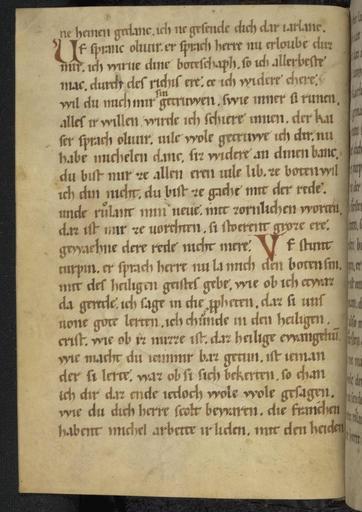 ne heinen gedanc. ich ne gesende dich dar iarlanc.
Uf spranc oliuir. er sprach herre nu erloube du
mir. ich wirue dine boteschaph. so ich allerbeste
mac. durch des richis ere. e ich widere chere.
wil du mich mir sin getruwen. swie inner si runen.
alles ir willen. wirde ich schiere innen. der kai
ser sprach oliuir. uile wole getruwe ich dir. nu
habe michelen danc. siz widere an dinen banc.
du bist mir ze allen eren uile lib. ze boten wil
ich din nicht. du bist ze gache mit der rede.
unde růlant min neue. mit zornlichen worten.
daz ist mir ze uorchten. si storent groze ere.
gewachne dere rede nicht mere. Uf stunt
turpin. er sprach herre nu la mich den boten sin.
mit des heiligen geistes gebe. wie ob ich etwaz
da gerede. ich sage in die ppheten. daz si uns
uone gote lerten. ich chunde in den heiligen.
crist. wie ob iz nuzze ist. daz heilige ewangeliū.
wie macht du iemmir baz getun. ist ieman
der si lerte. waz ob si sich bekerten. so chan
ich dir daz ende iedoch wole wole gesagen.
wie du dich herre scolt bewaren. die franchen
habent michel arbeite irliden. mit den heiden